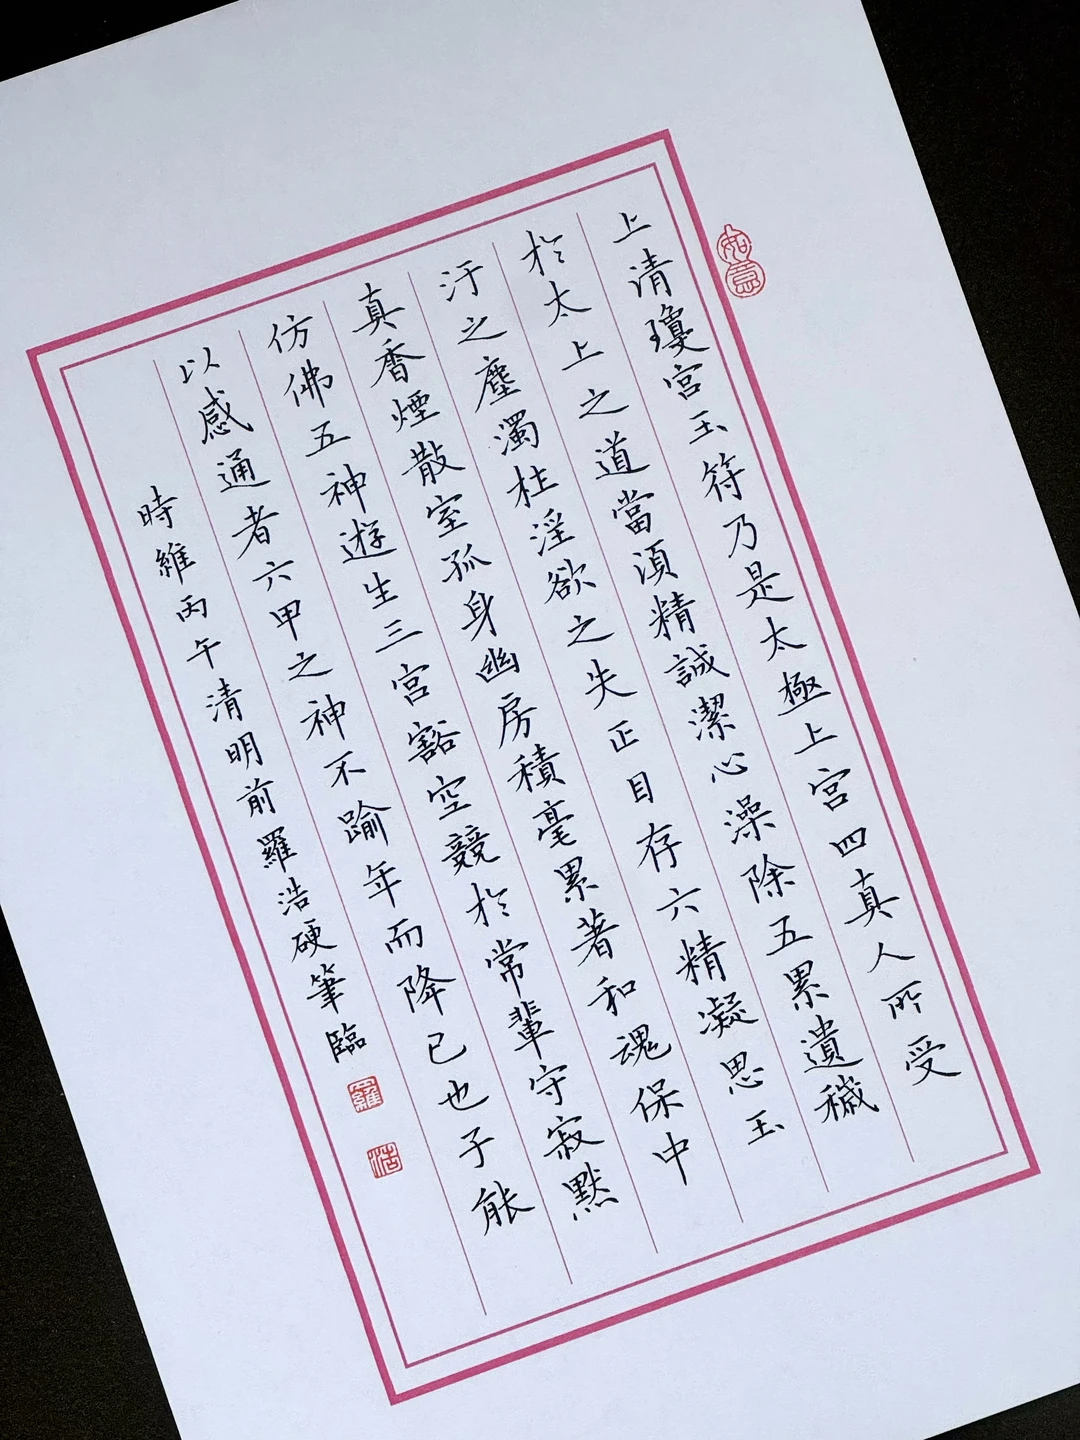 如意
上清瓊宮玉符乃是太極上宮四真人所受
於太上之道當須精誠潔心澡除五累遺穢
汙之塵濁杜淫欲之失正目存六精凝思玉
真香煙散室孤身幽房積毫累著和魂保中
仿佛五神遊生三宮豁空競於常輩守寂默
以感通者六甲之神不踰年而降已也子能
時維丙午清明前羅浩硬筆臨
羅
浩